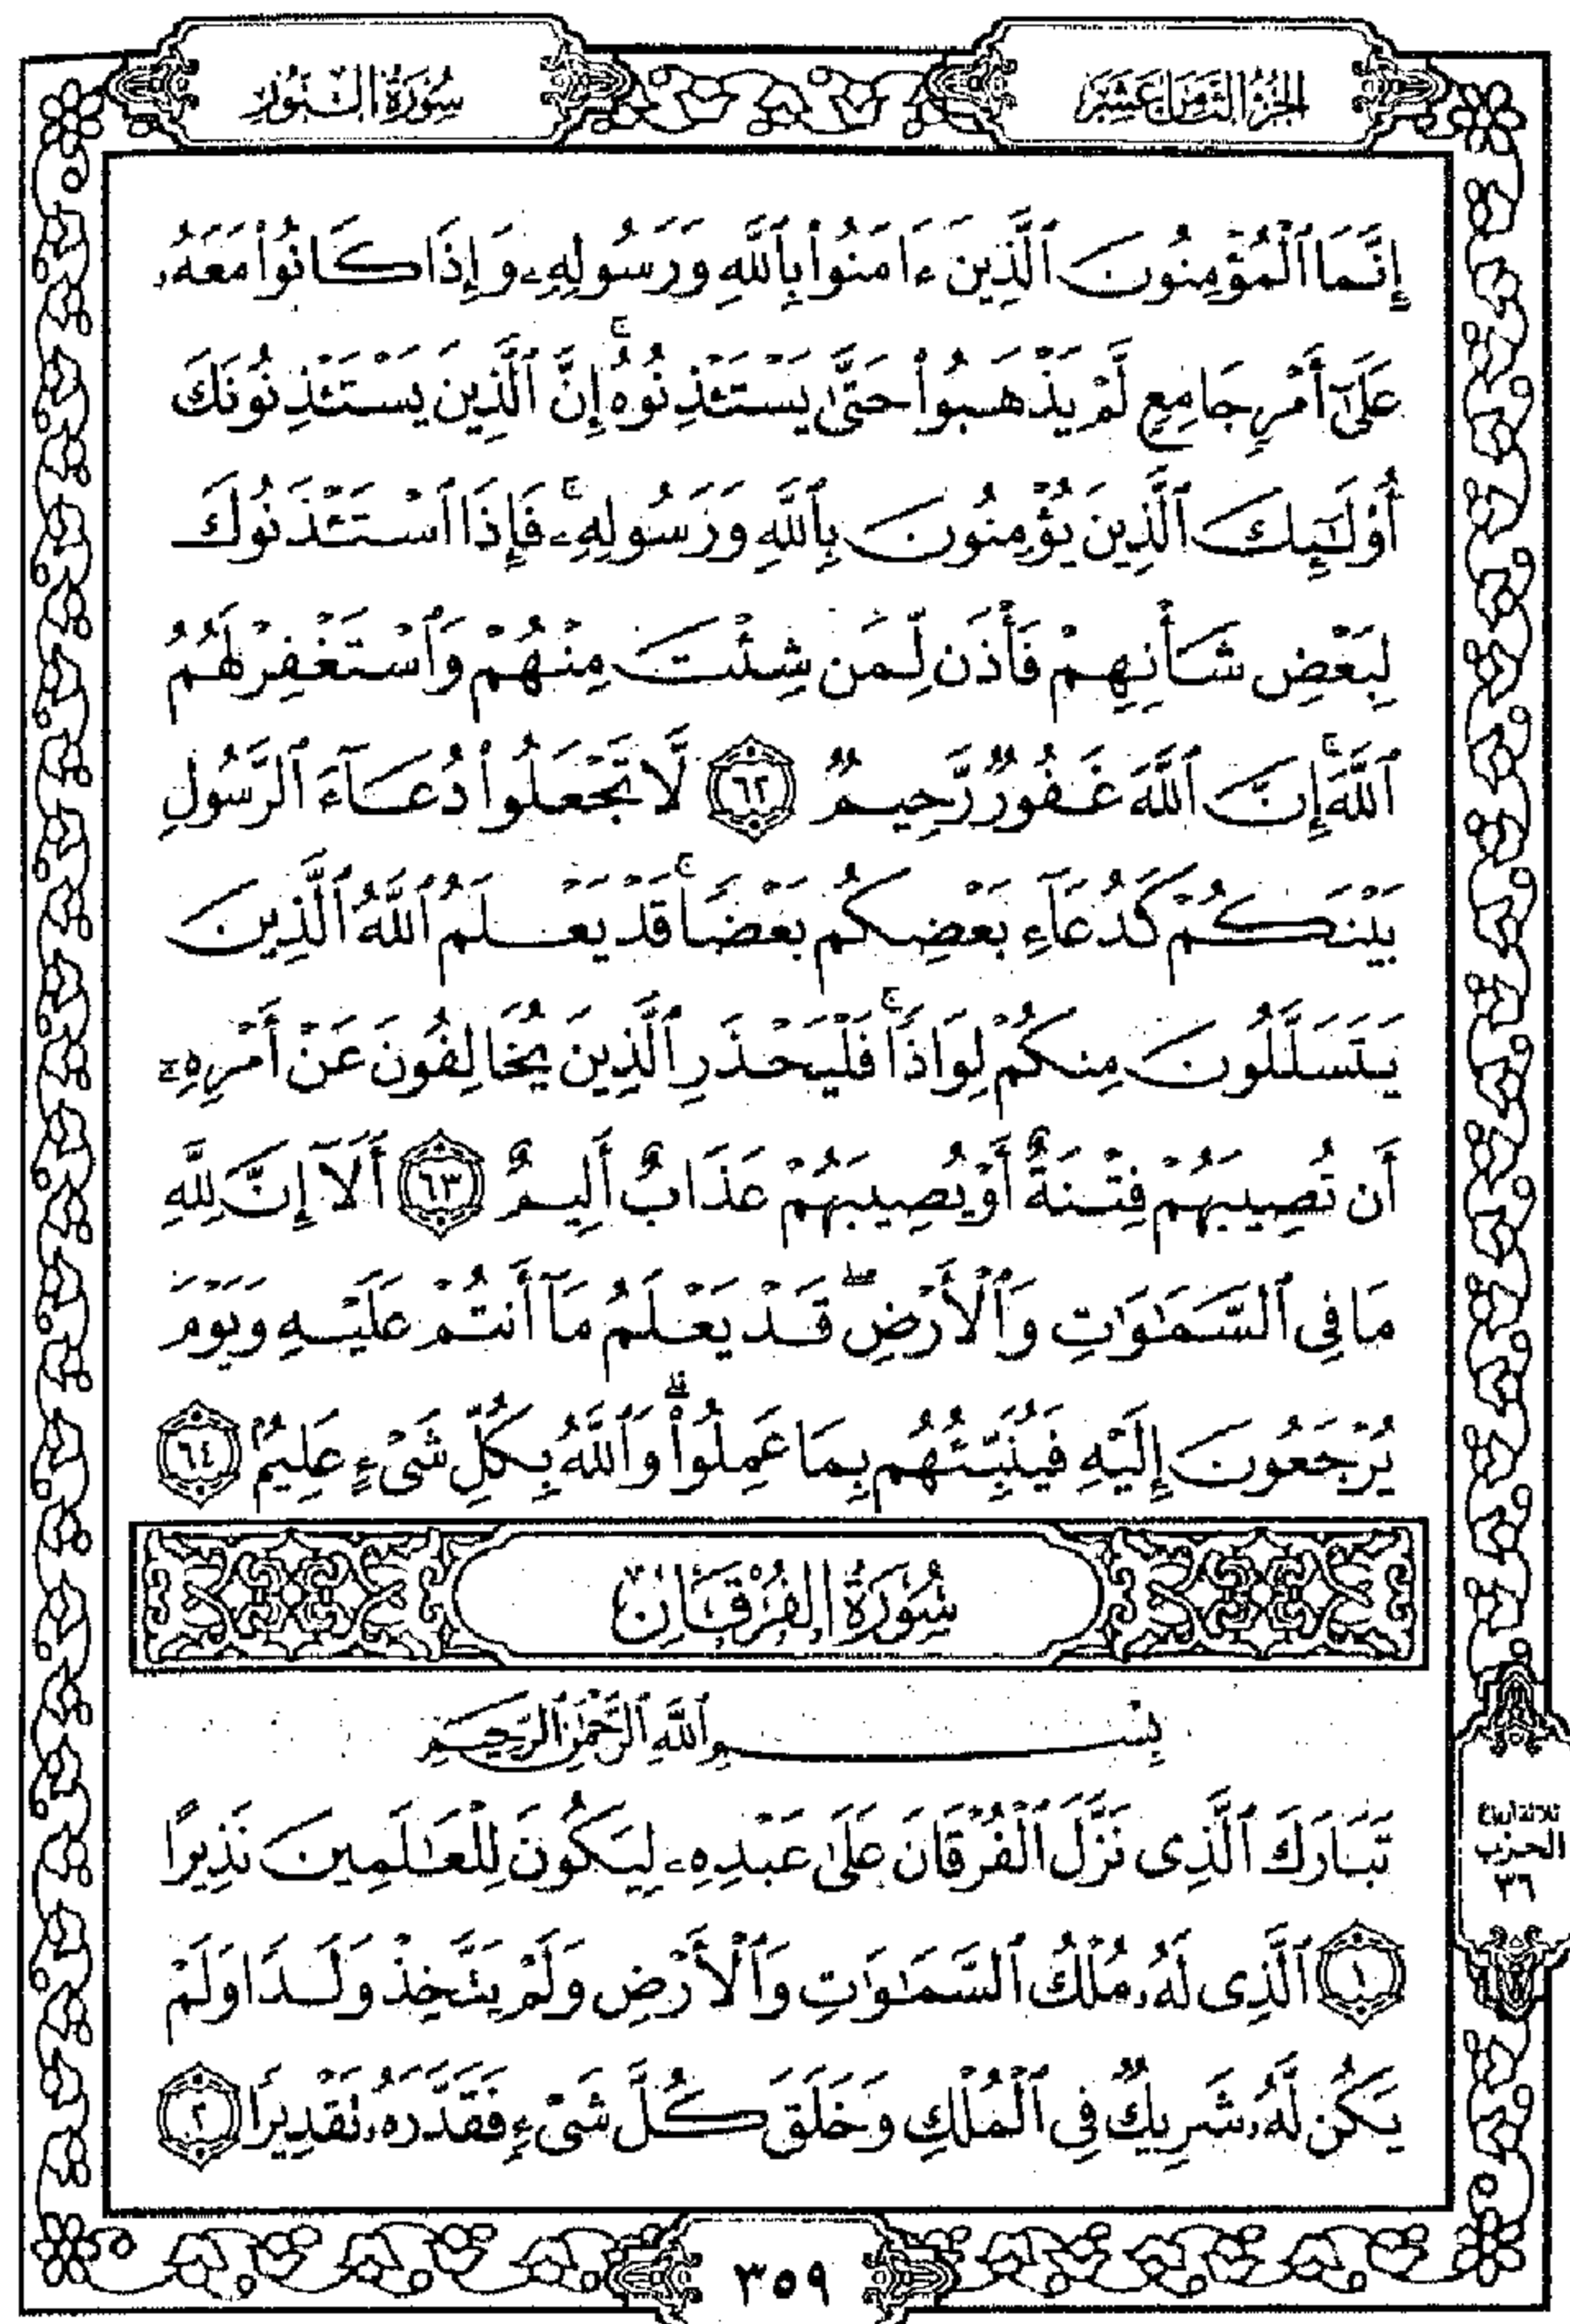 الجزء الثامن عشر
سورة النور
إِنَّمَا ٱلْمُؤْمِنُونَ ٱلَّذِينَ ءَامَنُوا۟ بِٱللَّهِ وَرَسُولِهِۦ وَإِذَا كَانُوا۟ مَعَهُۥ
عَلَىٰٓ أَمْرٍ جَامِعٍ لَّمْ يَذْهَبُوا۟ حَتَّىٰ يَسْتَـْٔذِنُوهُ ۚ إِنَّ ٱلَّذِينَ يَسْتَـْٔذِنُونَكَ
أُو۟لَـٰٓئِكَ ٱلَّذِينَ يُؤْمِنُونَ بِٱللَّهِ وَرَسُولِهِۦ ۚ فَإِذَا ٱسْتَـْٔذَنُوكَ
لِبَعْضِ شَأْنِهِمْ فَأْذَن لِّمَن شِئْتَ مِنْهُمْ وَٱسْتَغْفِرْ لَهُمُ
ٱللَّهَ ۚ إِنَّ ٱللَّهَ غَفُورٌ رَّحِيمٌ ٦٢ لَّا تَجْعَلُوا۟ دُعَآءَ ٱلرَّسُولِ
بَيْنَكُمْ كَدُعَآءِ بَعْضِكُم بَعْضًا ۚ قَدْ يَعْلَمُ ٱللَّهُ ٱلَّذِينَ
يَتَسَلَّلُونَ مِنكُمْ لِوَاذًا ۚ فَلْيَحْذَرِ ٱلَّذِينَ يُخَالِفُونَ عَنْ أَمْرِهِۦٓ
أَن تُصِيبَهُمْ فِتْنَةٌ أَوْ يُصِيبَهُمْ عَذَابٌ أَلِيمٌ ٦٣ أَلَآ إِنَّ لِلَّهِ
مَا فِى ٱلسَّمَـٰوَٰتِ وَٱلْأَرْضِ ۖ قَدْ يَعْلَمُ مَآ أَنتُمْ عَلَيْهِ وَيَوْمَ
يُرْجَعُونَ إِلَيْهِ فَيُنَبِّئُهُم بِمَا عَمِلُوا۟ ۗ وَٱللَّهُ بِكُلِّ شَىْءٍ عَلِيمٌۢ ٦٤
سُورَةُ الفُرْقَانِ
بِسْمِ ٱللَّهِ ٱلرَّحْمَـٰنِ ٱلرَّحِيمِ
تَبَارَكَ ٱلَّذِى نَزَّلَ ٱلْفُرْقَانَ عَلَىٰ عَبْدِهِۦ لِيَكُونَ لِلْعَـٰلَمِينَ نَذِيرًا
١ ٱلَّذِى لَهُۥ مُلْكُ ٱلسَّمَـٰوَٰتِ وَٱلْأَرْضِ وَلَمْ يَتَّخِذْ وَلَدًا وَلَمْ
يَكُن لَّهُۥ شَرِيكٌ فِى ٱلْمُلْكِ وَخَلَقَ كُلَّ شَىْءٍ فَقَدَّرَهُۥ تَقْدِيرًا ٢
ثلاثة أرباع
الحزب
٣٦
٣٥٩